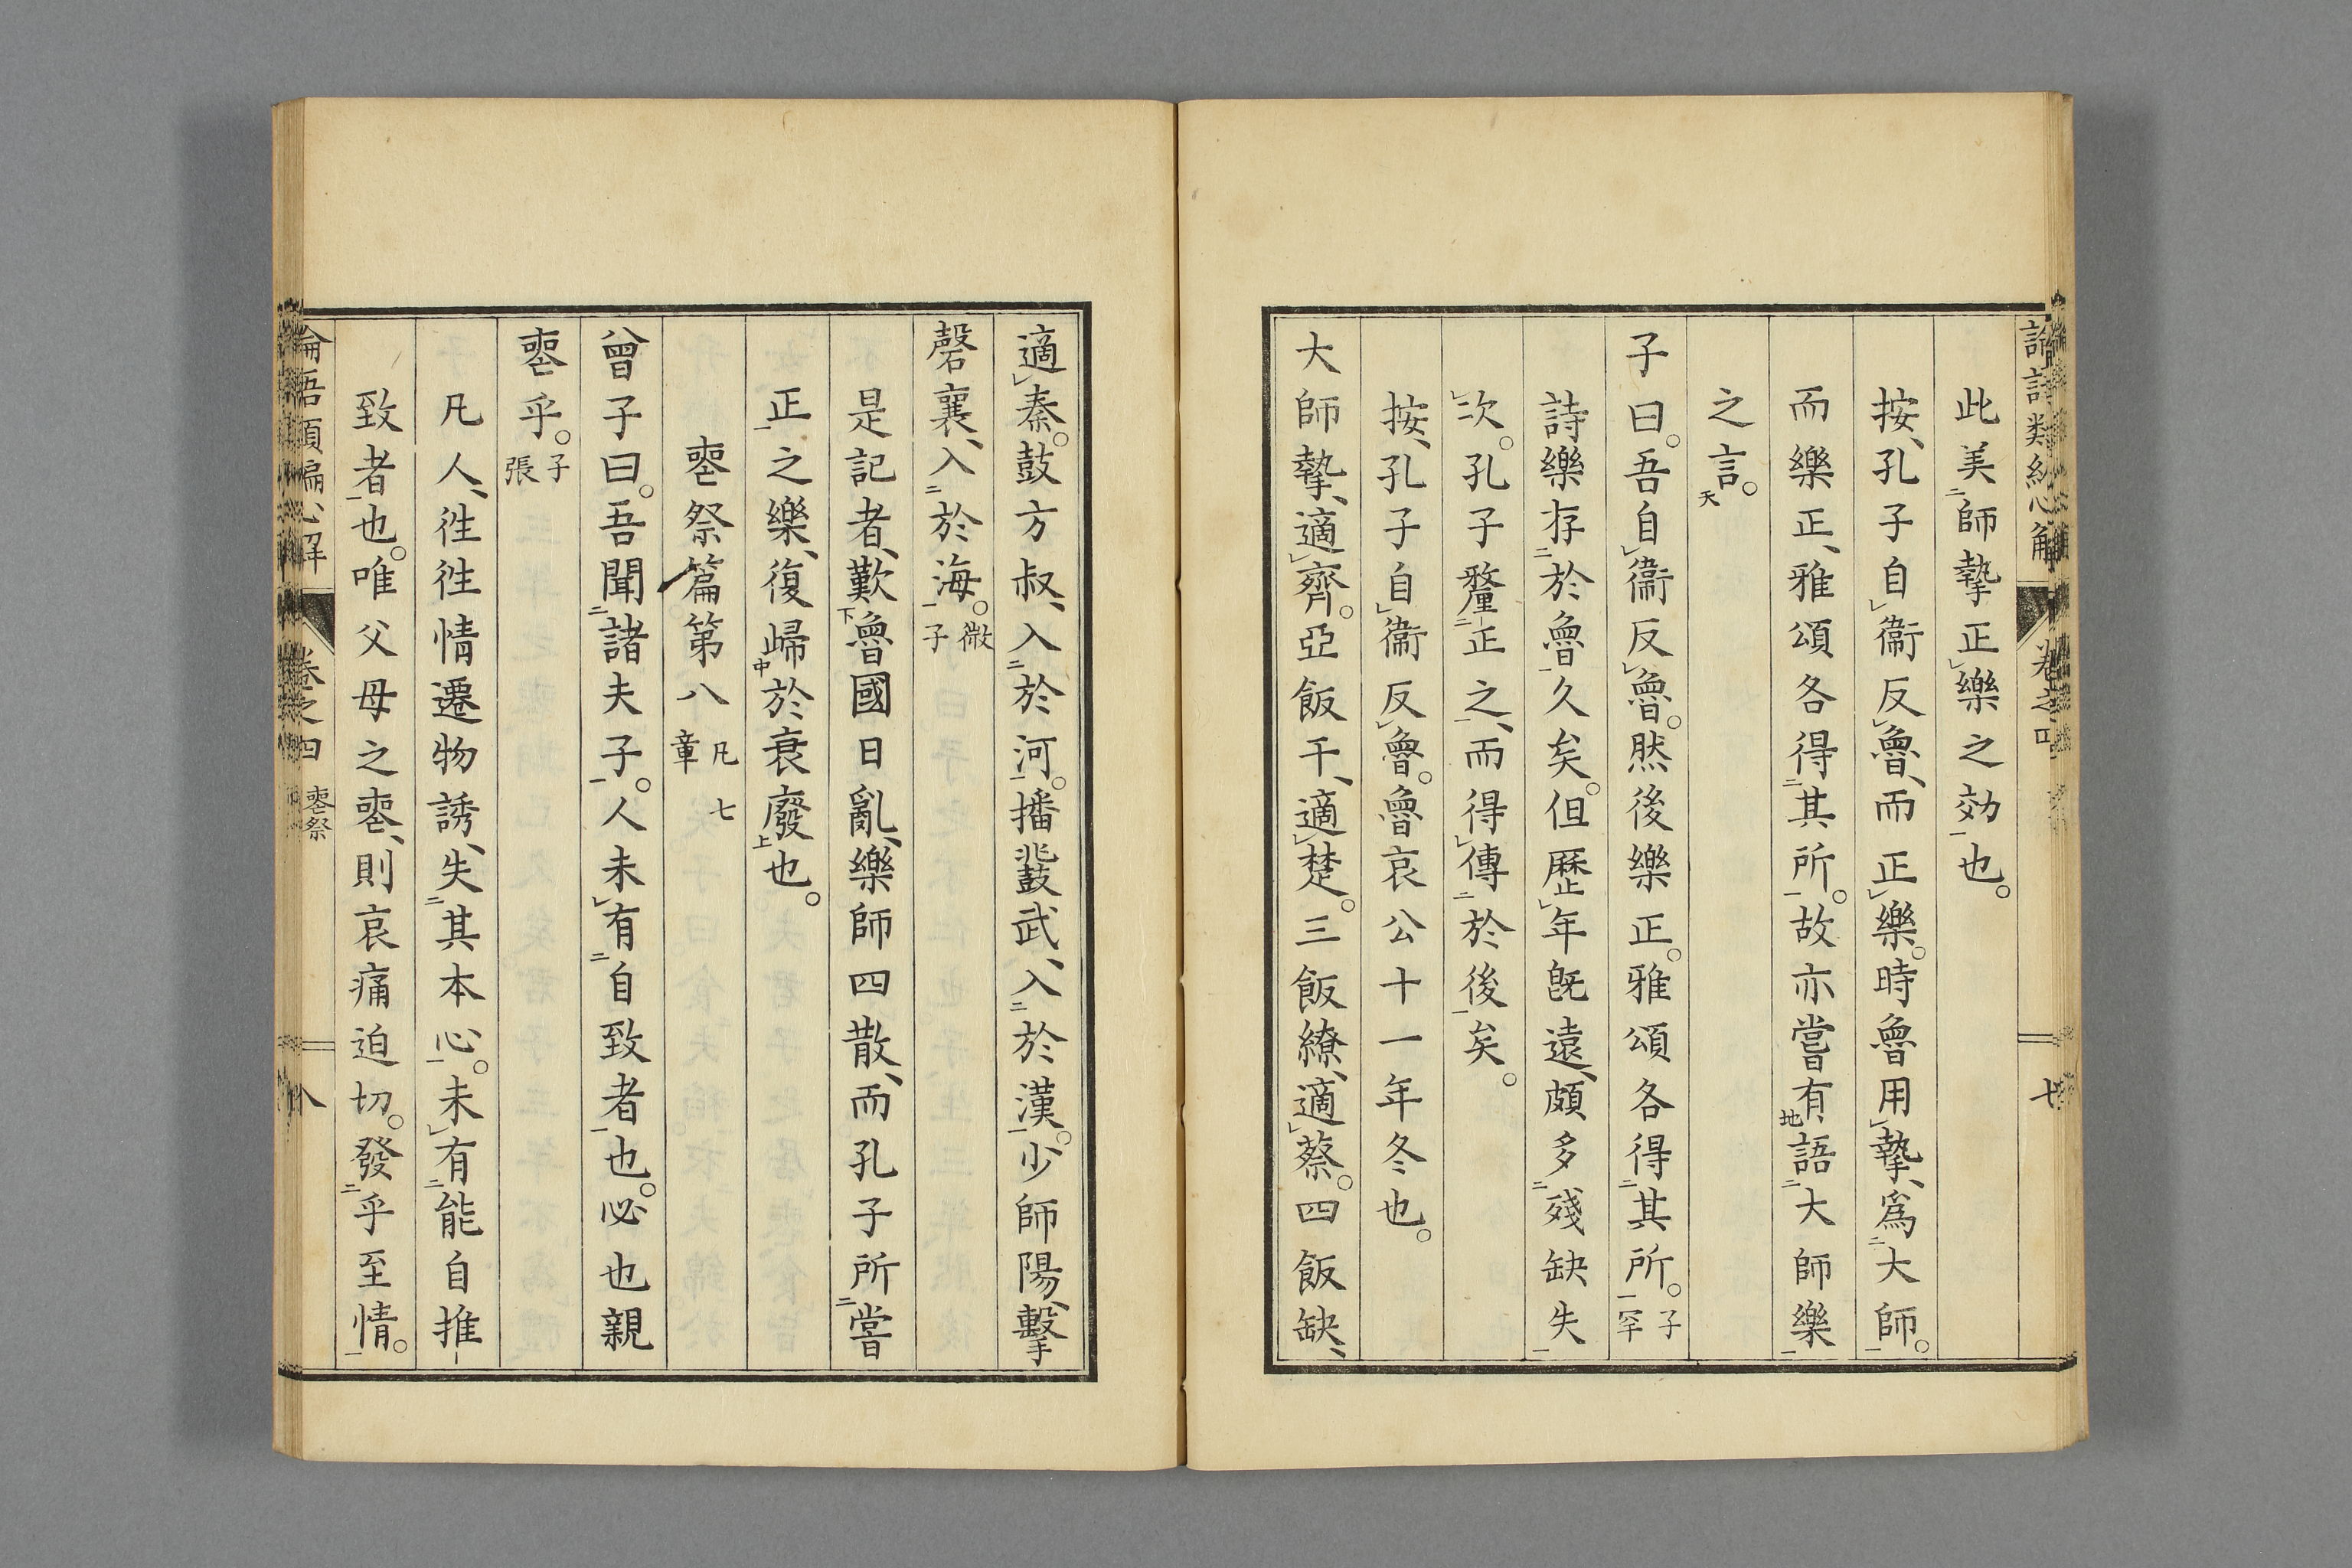 此美師摯正樂之効也。
按、孔子自衞反魯、而正樂。時魯用摯、爲大師。
而樂正、雅頌各得其所。故亦嘗有語大師樂
之言。
子曰。吾自衞反魯。然後樂正。雅頌各得其所。子罕
詩樂存於魯久矣。但歷年既遠、頗多殘缺失
次。孔子釐正之、而得傳於後矣。
按、孔子自衞反魯。魯哀公十一年冬也。
大師摯、適齊。亞飯干、適楚。三飯繚、適蔡。四飯缺、
適秦。鼓方叔、入於河。播鼗武、入於漢。少師陽、擊
磬襄、入於海。微子
是記者、歎魯國日亂、樂師四散、而孔子所嘗
正之樂、復歸於衰廢也。
喪祭篇第八 凡七章
曾子曰。吾聞諸夫子。人未有自致者也。必也親
喪乎。子張
凡人、徃徃情遷物誘、失其本心。未有能自推
致者也。唯父母之喪、則哀痛迫切。發乎至情。
卷之四 喪祭 八